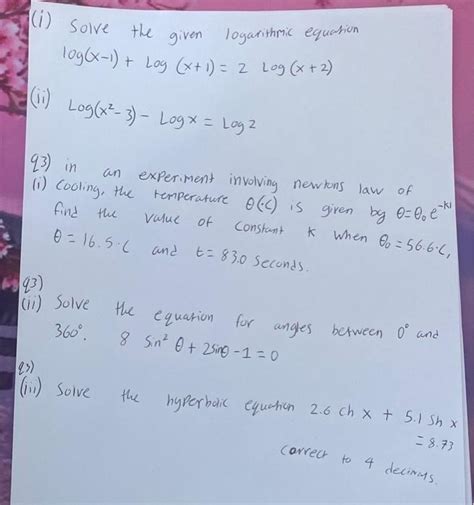 (i) Solve the given logarithmic equation
log(x-1) + Log (x+1) = 2 Log (x+2)
(ii) Log(x²-3) - Log x = Log 2
Q3) in an experiment involving newtons law of
(i) Cooling, the temperature θ(°C) is given by θ=θ₀ e^-kt
find the value of constant K when θ₀ = 56.6°C,
θ = 16.5°C and t = 83.0 Seconds.
Q3)
(ii) Solve the equation for angles between 0° and
360°. 8 Sin² θ + 2sinθ - 1 = 0
Q3)
(iii) Solve the hyperbolic equation 2.6 ch x + 5.1 Sh x
= 8.73
correct to 4 decimals.